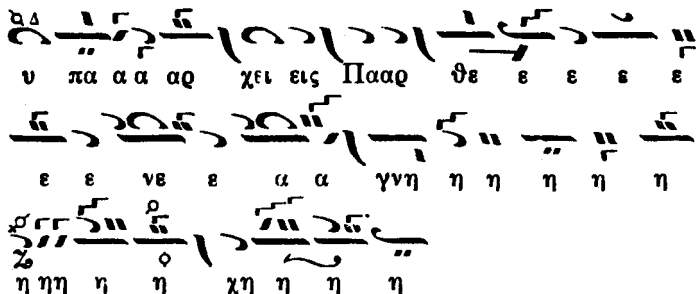 υ πα α α αρ χει εις Πααρ θε ε ε ε ε
ε ε νε ε α α γνη η η η η η
η ηη η η χη η η η